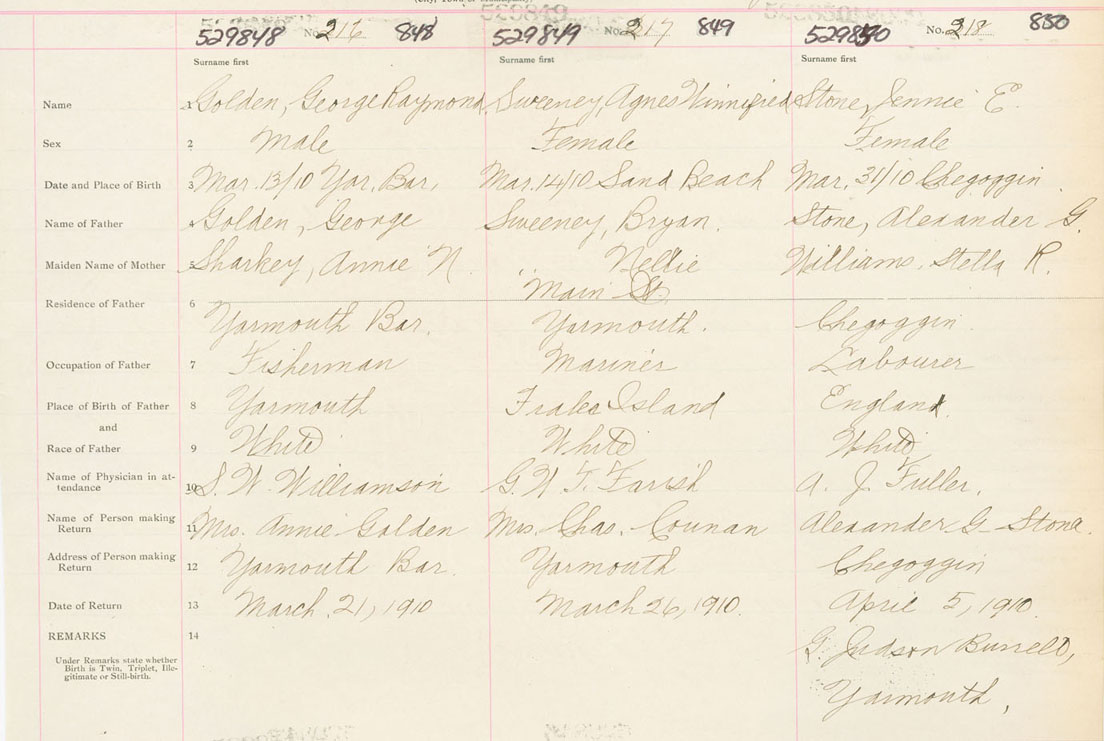 529848 No. 216 848 529849 No. 217 849 529850 No. 218 850
Surname first Surname first Surname first
Name 1 Golden, George Raymond Sweeney, Agnes Winnifred Stone, Jennie E.
Sex 2 Male Female Female
Date and Place of Birth 3 Mar. 13/10 Yar. Bar. Mar. 14/10 Sand Beach Mar. 31/10 Chegoggin
Name of Father 4 Golden, George Sweeney, Bryan. Stone, Alexander G.
Maiden Name of Mother 5 Sharkey, Annie N. " Nellie Williams, Stella R.
Residence of Father 6 Main St.
Yarmouth Bar. Yarmouth. Chegoggin.
Occupation of Father 7 Fisherman Mariner Labourer
Place of Birth of Father 8 Yarmouth Island England.
and
Race of Father 9 White White White
Name of Physician in at-
tendance 10 S. W. Williamson G. W. T. Farish A. J. Fuller.
Name of Person making
Return 11 Mrs. Annie Golden Mrs. Chas. Alexander G. Stone.
Address of Person making
Return 12 Yarmouth Bar. Yarmouth Chegoggin
Date of Return 13 March 21, 1910 March 26, 1910. April 5, 1910.
REMARKS 14 G. Judson Burrell,
Under Remarks state whether
Birth is Twin, Triplet, Ille-
gitimate or Still-birth.
Yarmouth,